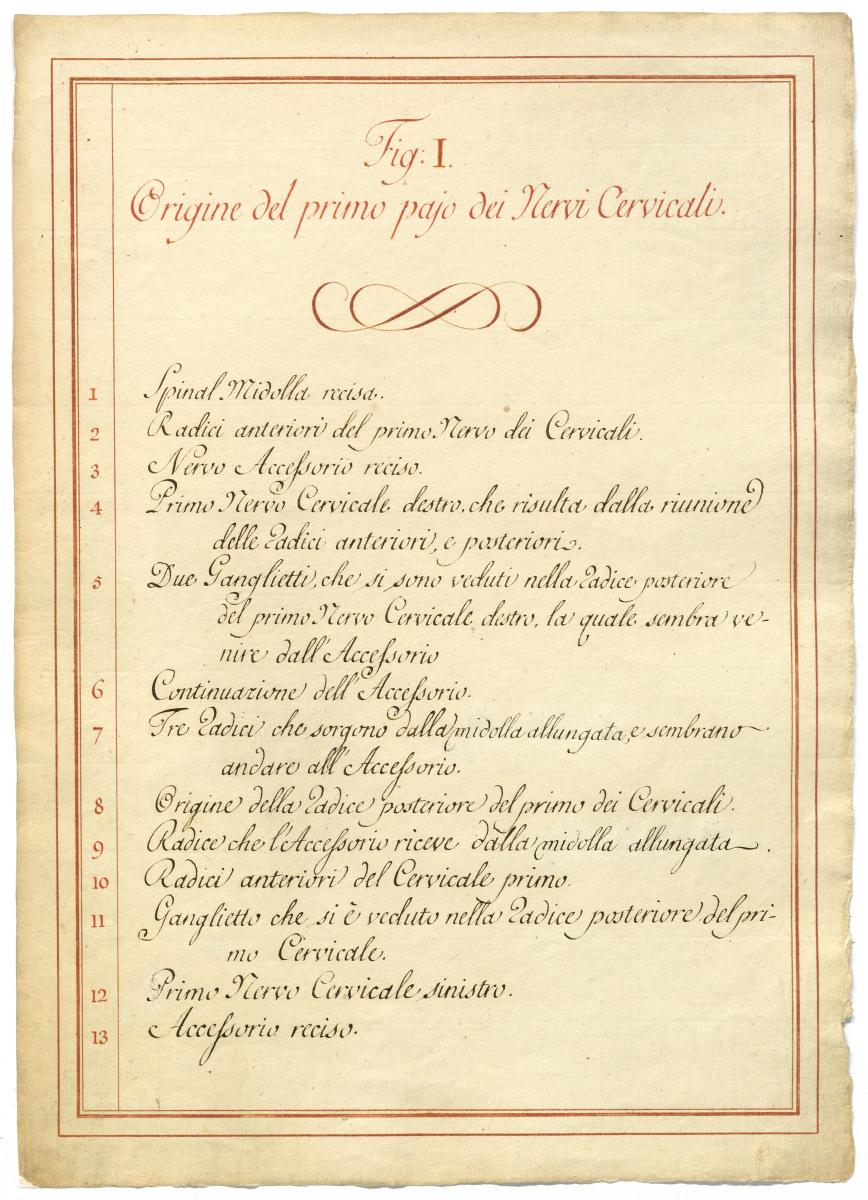 Fig: I.
Origine del primo pajo dei Nervi Cervicali.
1 Spinal Midolla recisa.
2 Radici anteriori del primo Nervo dei Cervicali.
3 Nervo Accessorio reciso.
4 Primo Nervo Cervicale destro, che risulta dalla riunione
delle Radici anteriori, e posteriori.
5 Due Ganglietti, che si sono veduti nella Radice posteriore
del primo Nervo Cervicale destro, la quale sembra ve-
nire dall'Accessorio
6 Continuazione dell'Accessorio.
7 Tre Radici che sorgono dalla midolla allungata, e sembrano
andare all'Accessorio.
8 Origine della Radice posteriore del primo dei Cervicali.
9 Radice che l'Accessorio riceve dalla midolla allungata.
10 Radici anteriori del Cervicale primo.
11 Ganglietto che si è veduto nella Radice posteriore del pri-
mo Cervicale.
12 Primo Nervo Cervicale sinistro.
13 Accessorio reciso.